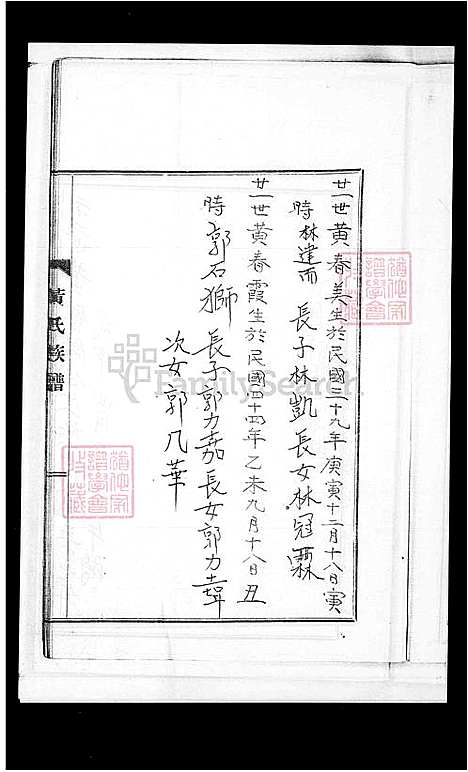 廿一世黃春美生於民國三十九年庚寅十二月十八日寅
時 林建而 長子林凱 長女林冠霖
廿一世黃春霞生於民國四十四年乙未九月十八日丑
時 郭石獅 長子郭力嘉 長女郭力瑋
次女郭凡華
黃氏族譜
FamilySearch
譜學會
譜學會